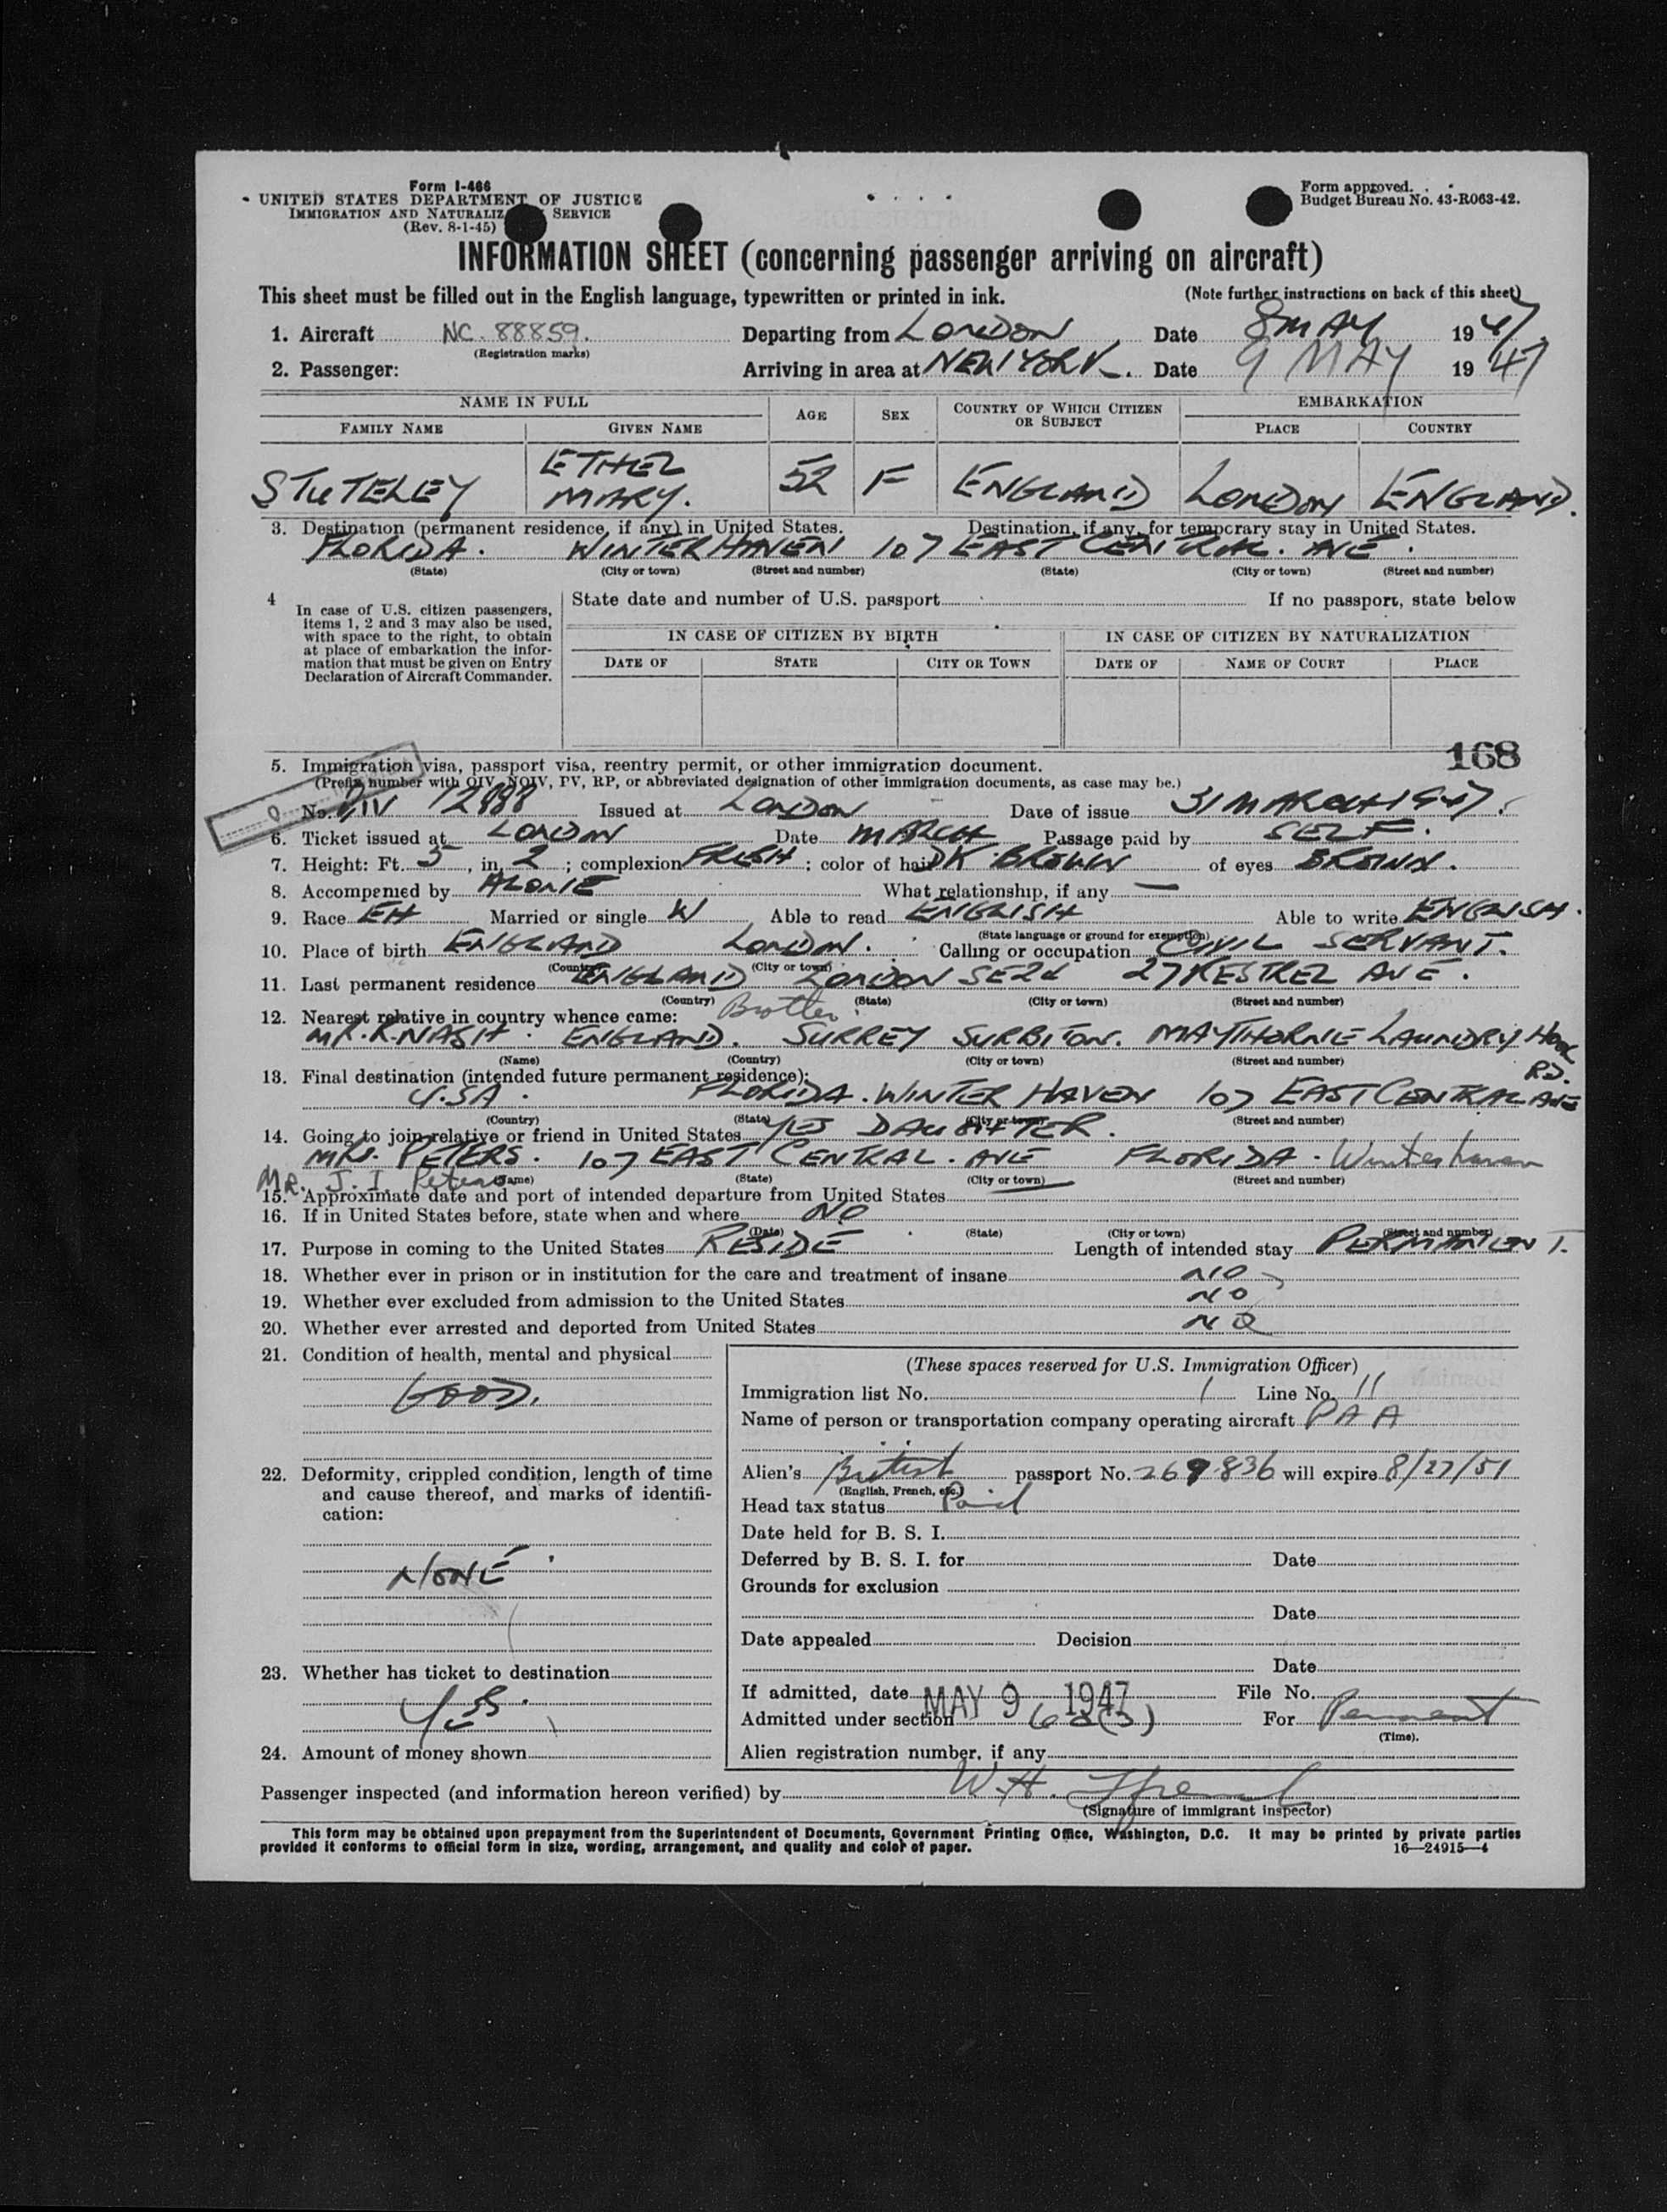 Form I-466
UNITED STATES DEPARTMENT OF JUSTICE
IMMIGRATION AND NATURALIZ SERVICE
(Rev. 8-1-45)
Form approved.
Budget Bureau No. 43-R063-42.
INFORMATION SHEET (concerning passenger arriving on aircraft)
This sheet must be filled out in the English language, typewritten or printed in ink. (Note further instructions on back of this sheet)
1. Aircraft NC. 88859. Departing from LONDON Date 8 MAY 1947
(Registration marks)
2. Passenger: Arriving in area at NEW YORK. Date 9 MAY 1947
NAME IN FULL AGE SEX COUNTRY OF WHICH CITIZEN OR SUBJECT EMBARKATION
FAMILY NAME GIVEN NAME PLACE COUNTRY
STUTELEY ETHEL MARY. 52 F ENGLAND LONDON ENGLAND.
3. Destination (permanent residence, if any) in United States. Destination, if any, for temporary stay in United States.
FLORIDA. WINTER HAVEN 107 EAST CENTRAL. AVE.
(State) (City or town) (Street and number) (State) (City or town) (Street and number)
4 In case of U.S. citizen passengers, items 1, 2 and 3 may also be used, with space to the right, to obtain at place of embarkation the information that must be given on Entry Declaration of Aircraft Commander.
State date and number of U.S. passport If no passport, state below
IN CASE OF CITIZEN BY BIRTH IN CASE OF CITIZEN BY NATURALIZATION
DATE OF STATE CITY OR TOWN DATE OF NAME OF COURT PLACE
168
5. Immigration visa, passport visa, reentry permit, or other immigration document.
(Prefix number with QIV, NQIV, PV, RP, or abbreviated designation of other immigration documents, as case may be.)
No. 12888 Issued at LONDON Date of issue 31 MARCH 1947.
6. Ticket issued at LONDON Date MARCH Passage paid by SELF.
7. Height: Ft. 5, in. 2; complexion FRESH; color of hair DK BROWN of eyes BROWN.
8. Accompanied by ALONE What relationship, if any —
9. Race EH Married or single W Able to read ENGLISH Able to write ENGLISH.
(State language or ground for exemption)
10. Place of birth ENGLAND LONDON. Calling or occupation CIVIL SERVANT.
(Country) (City or town)
11. Last permanent residence ENGLAND LONDON SE24 27 KESTREL AVE.
(Country) (State) (City or town) (Street and number)
12. Nearest relative in country whence came: Brother.
MR. R. NASH. ENGLAND. SURREY SURBITON. MAYTHORNE LAUNDRY HOOK RD.
(Name) (Country) (City or town) (Street and number)
13. Final destination (intended future permanent residence):
U.S.A. FLORIDA. WINTER HAVEN 107 EAST CENTRAL AVE
(Country) (State) (City or town) (Street and number)
14. Going to join relative or friend in United States YES DAUGHTER.
MRS. PETERS. 107 EAST CENTRAL. AVE FLORIDA. Winterhaven
MR. J. I. Peters
(Name) (State) (City or town) (Street and number)
15. Approximate date and port of intended departure from United States
16. If in United States before, state when and where NO
(Date) (State) (City or town) (Street and number)
17. Purpose in coming to the United States RESIDE Length of intended stay PERMANENT.
18. Whether ever in prison or in institution for the care and treatment of insane NO
19. Whether ever excluded from admission to the United States NO
20. Whether ever arrested and deported from United States NO
21. Condition of health, mental and physical
GOOD.
22. Deformity, crippled condition, length of time and cause thereof, and marks of identification:
NONE.
23. Whether has ticket to destination
YES.
24. Amount of money shown
(These spaces reserved for U.S. Immigration Officer)
Immigration list No. 1 Line No. 11
Name of person or transportation company operating aircraft PAA
Alien's British passport No. 269836 will expire 8/27/51
(English, French, etc.)
Head tax status Paid
Date held for B. S. I.
Deferred by B. S. I. for Date
Grounds for exclusion
Date
Date appealed Decision
Date
If admitted, date MAY 9 1947 File No.
Admitted under section 6a(3) For Permanent
(Time).
Alien registration number, if any
Passenger inspected (and information hereon verified) by W. H.
(Signature of immigrant inspector)
This form may be obtained upon prepayment from the Superintendent of Documents, Government Printing Office, Washington, D.C. It may be printed by private parties
provided it conforms to official form in size, wording, arrangement, and quality and color of paper. 16—24915—4